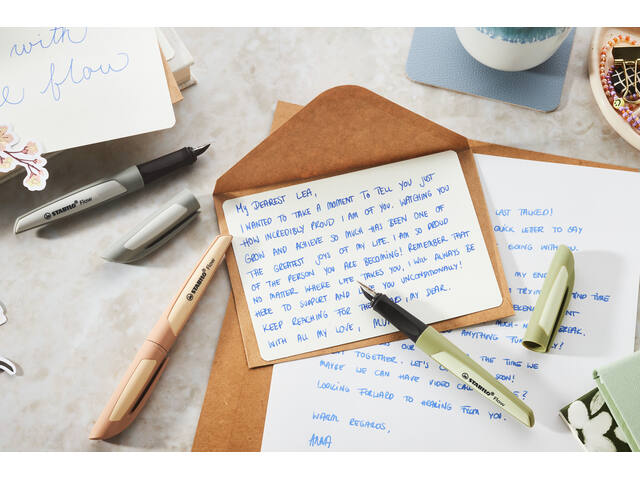 with
flow
STABILO Flow
STABILO Flow
My DEAREST LEA,
I WANTED TO TAKE A MOMENT TO TELL YOU JUST
HOW INCREDIBLY PROUD I AM OF YOU. WATCHING YOU
GROW AND ACHIEVE SO MUCH HAS BEEN ONE OF
THE GREATEST JOYS OF MY LIFE. I AM SO PROUD
OF THE PERSON YOU ARE BECOMING! REMEMBER THAT
NO MATTER WHERE LIFE TAKES YOU, I WILL ALWAYS BE
HERE TO SUPPORT AND YOU UNCONDITIONALLY!
KEEP REACHING FOR THE MY DEAR.
WITH ALL MY LOVE,
LAST TALKED!
QUICK LETTER TO SAY
GOING WITH YOU.
MY
TRYING TIME
BREAK.
ANYTHING
OUR THE TIME WE
TOGETHER. LET'S SOON!
MAYBE WE CAN HAVE VIDEO CALL
LOOKING FORWARD TO HEARING FROM YOU.
WARM REGARDS,
ANNA
STABILO Flow